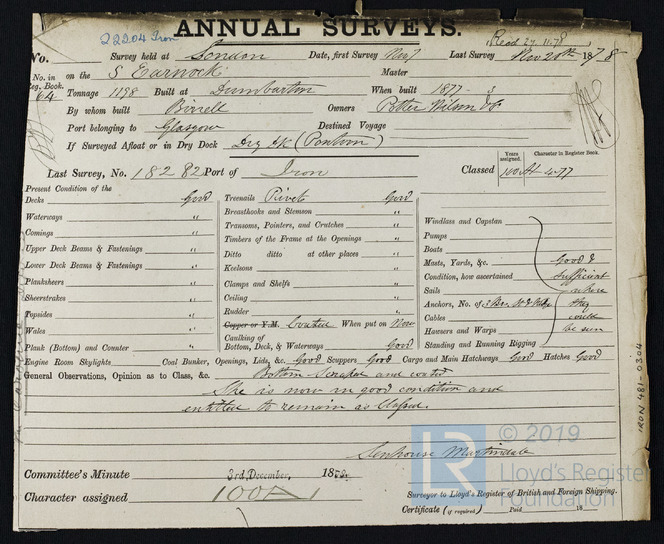 22204 Iron
ANNUAL SURVEYS.
Recd 27.11.78
No. Survey held at London Date, first Survey Nov 7 Last Survey Nov 20th 1878
No. in Reg. Book. 64 on the S Earnock. Master
Tonnage 1198 Built at Dumbarton When built 1877 - 3
By whom built Birrell Owners Potter Wilson & Co
Port belonging to Glasgow Destined Voyage
If Surveyed Afloat or in Dry Dock Dry Dk (Pontoon)
Years assigned. Character in Register Book.
Last Survey, No. 18282 Port of Iron Classed 100 A1 4-77
Present Condition of the
Decks Good
Waterways "
Comings "
Upper Deck Beams & Fastenings "
Lower Deck Beams & Fastenings "
Planksheers "
Sheerstrakes "
Topsides "
Wales "
Plank (Bottom) and Counter "
Treenails Rivets Good
Breasthooks and Stemson "
Transoms, Pointers, and Crutches "
Timbers of the Frame at the Openings "
Ditto ditto at other places "
Keelsons "
Clamps and Shelfs "
Ceiling "
Rudder "
Copper or Y.M. Coated When put on Now
Caulking of Bottom, Deck, & Waterways Good
Windlass and Capstan
Pumps
Boats
Masts, Yards, &c. Good &
Condition, how ascertained sufficient
Sails where
Anchors, No. of they
Cables could
Hawsers and Warps be seen
Standing and Running Rigging
Engine Room Skylights Coal Bunker, Openings, Lids, &c. Good Scuppers Good Cargo and Main Hatchways Good Hatches Good
General Observations, Opinion as to Class, &c. Bottom Scraped and coated
She is now in good condition and
entitled to remain as Classed.
Senhouse Martindale
Committee's Minute 3rd December, 1878.
Character assigned 100A1
Surveyor to Lloyd's Register of British and Foreign Shipping.
Certificate (if required) Paid 18
IRON 481-0304
LR
© 2019
Lloyd's Register
Foundation